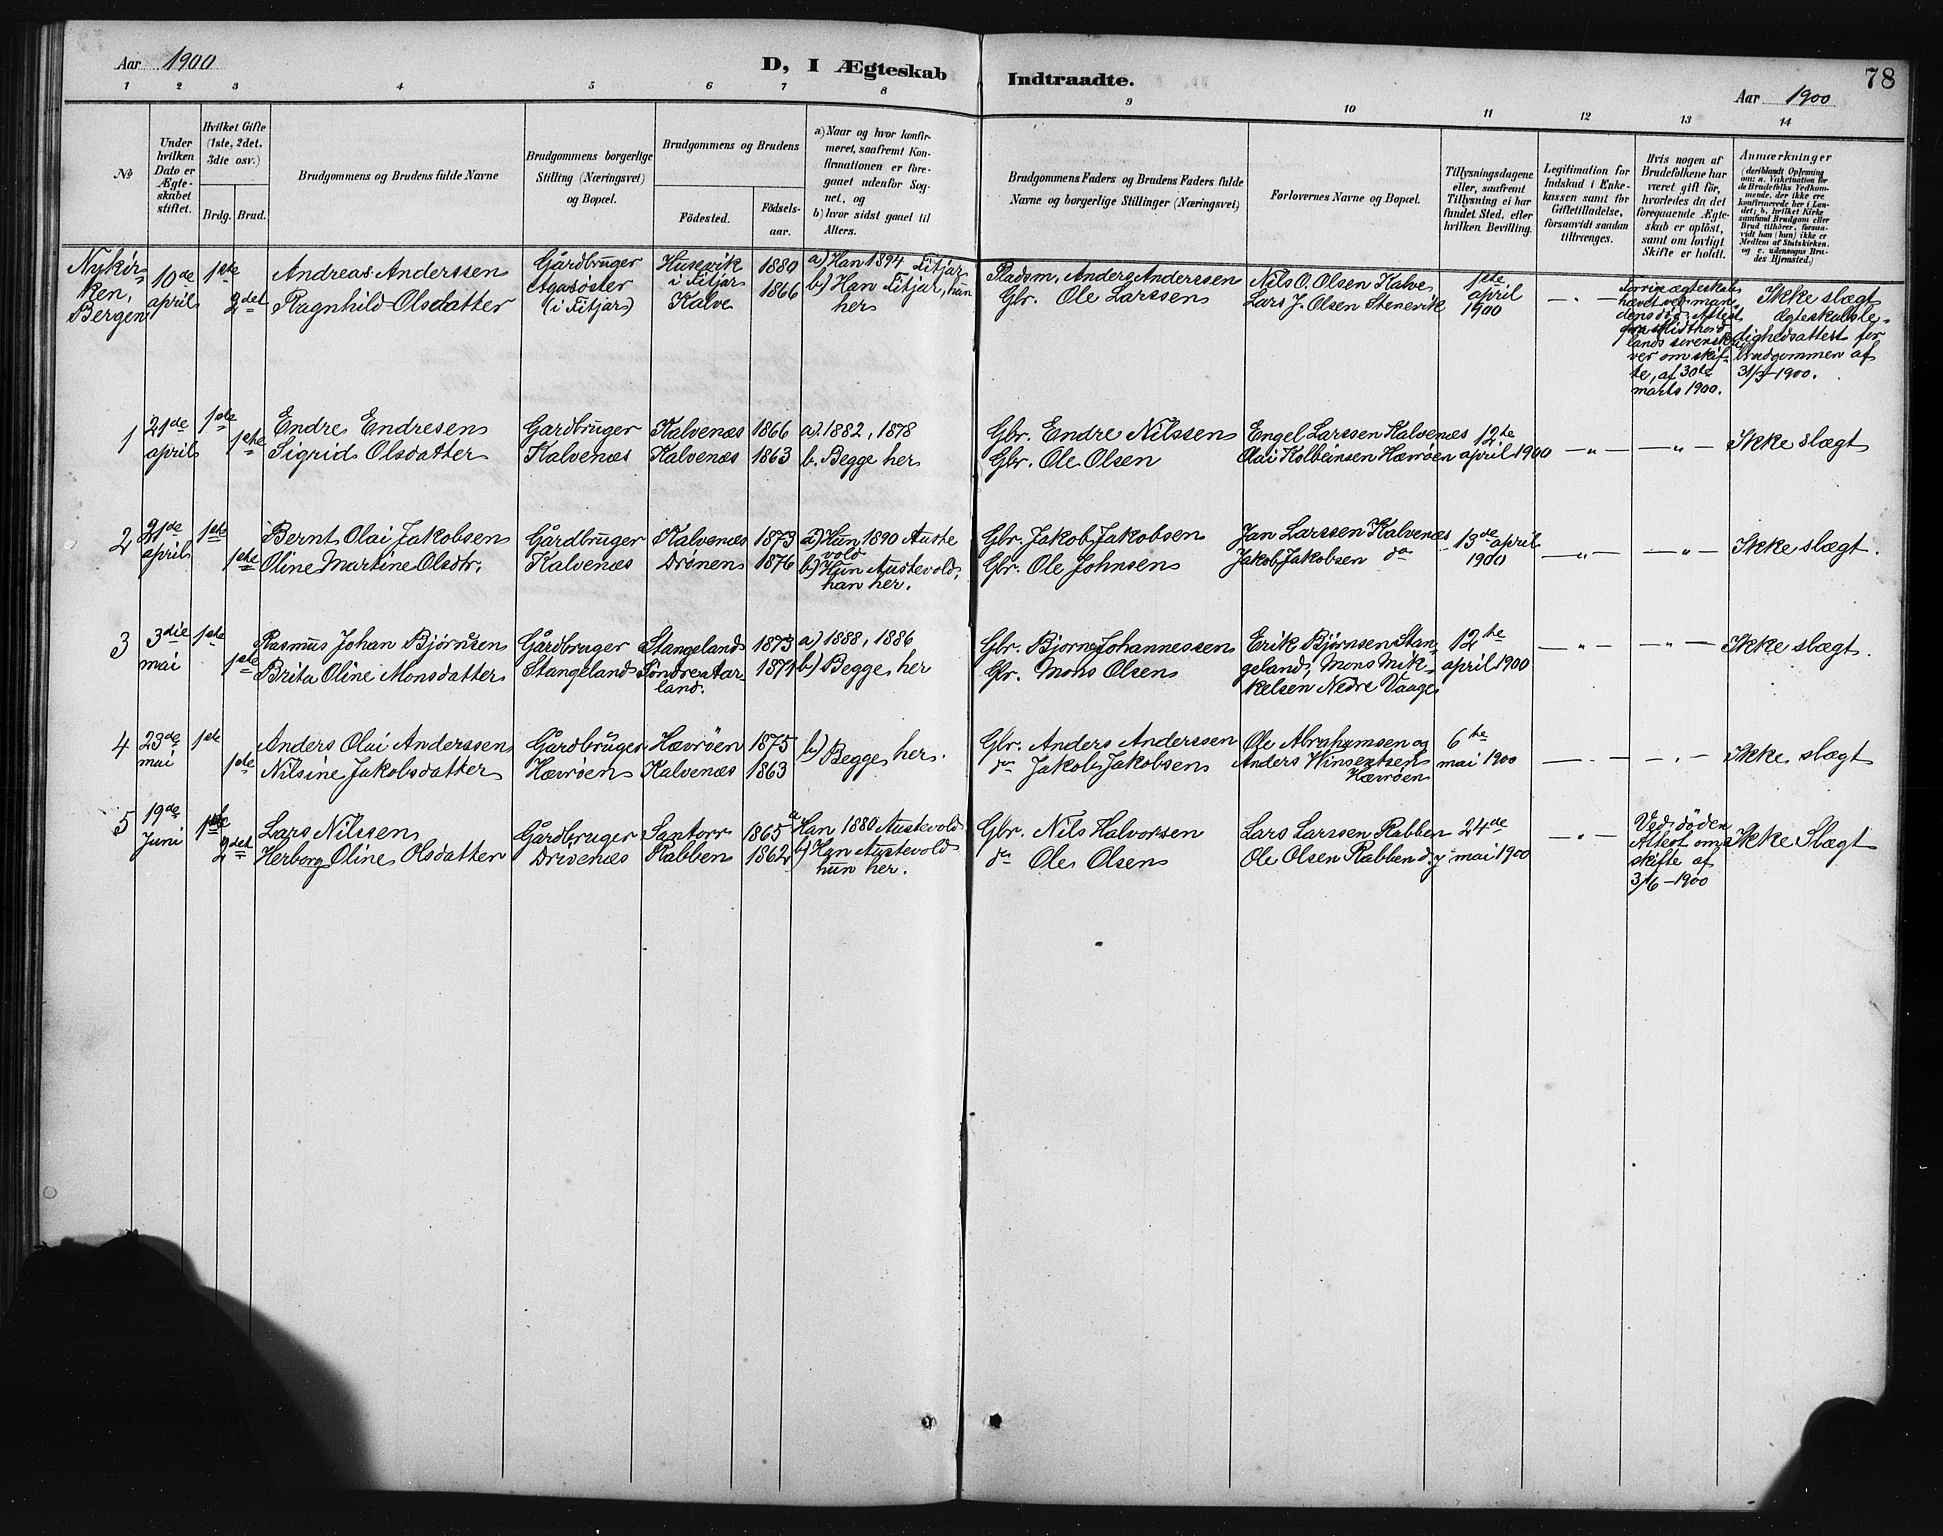 78
Aar 1900
D, I Ægteskab Indtraadte.
Aar 1900
1 2 3 4 5 6 7 8 9 10 11 12 13 14
No
Under hvilken Dato er Ægteskabet stiftet.
Hvilket Gifte (1ste, 2det, 3die osv.)
Brdg. Brud.
Brudgommens og Brudens fulde Navne
Brudgommens borgerlige Stilling (Næringsvei) og Bopæl.
Brudgommens og Brudens
Fødested. Fødselsaar.
a) Naar og hvor konfirmeret, saafremt Konfirmationen er foregaaet udenfor Sognet, og
b) hvor sidst gaaet til Alters.
Brudgommens Faders og Brudens Faders fulde Navne og borgerlige Stillinger (Næringsvei)
Forlovernes Navne og Bopæl.
Tillysningsdagene eller, saafremt Tillysning ei har fundet Sted, efter hvilken Bevilling.
Legitimation for Indskud i Enkekassen samt for Giftetilladelse, forsaavidt saadan tiltrænges.
Hvis nogen af Brudefolkene har været gift før, hvorledes da det foregaaende Ægteskab er opløst, samt om lovligt Skifte er holdt.
Anmærkninger
(deriblandt Oplysning om: a. Vakcination for de Brudefolks Vedkommende, der ikke ere konfirmerede her i Landet; b. hvilket Kirkesamfund Brudgom eller Brud tilhører, forsaavidt han (hun) ikke er Medlem af Statskirken, og c. udensogns Brudes Hjemsted.)
Nykirken, Bergen
10de april
1ste
2det
Andreas Anderssen
Ragnhild Olsdatter
Gårdbruger
Agasøster
(i Fitjar)
Husevik
i Fitjar
Kalve
1880
1866
a) Han 1894 Fitjar
b) Han Fitjar, hun
her
Pladsm. Anders Anderssen
Gbr. Ole Larssen
Nils O. Olsen Kalve
Lars J. Olsen Stenevik
1ste
april
1900
— „ —
Ikke slægt
ægteskabsle-
dighedsattest for
Brudgommen af
31/3 1900.
te, af 30te
marts 1900.
1
21de
april
1ste
1ste
Endre Endresen
Sigrid Olsdatter
Gardbruger
Kalvenæs
Kalvenæs
Kalvenæs
1866
1863
a) 1882, 1878
b. Begge her
Gbr. Endre Nilssen
Gbr. Ole Olsen
Engel Larssen Kalvenæs
Olai Kolbeinsen Hævrøen
12te
april 1900
— „ —
— „ —
Ikke slægt
2
21de
april
1ste
1ste
Bernt Olai Jakobsen
Oline Martine Olsdtr.
Gårdbruger
Kalvenæs
Kalvenæs
Drønen
1873
1876
a) Hun 1890 Auste
vold
b) Hun Austevold,
han her.
Gbr. Jakob Jakobsen
Gbr. Ole Johnsen
Jan Larssen Kalvenæs
Jakob Jakobsen do
13de april
1900
— „ —
— „ —
Ikke slægt.
3
3die
mai
1ste
1ste
Rasmus Johan Bjørnsen
Brita Oline Monsdatter
Gårdbruger
Stangeland
Stangeland
Søndre Aar
land.
1873
1871
a) 1888, 1886
b) Begge her
Gbr. Bjørne Johannessen
Gbr. Mons Olsen
Erik Bjørnsen Stan-
geland, Mons Mik-
kelsen Nedre Vaage
12te
april 1900
— „ —
— „ —
Ikke slægt.
4
23de
mai
1ste
1ste
Anders Olai Anderssen
Nilsine Jakobsdatter
Gårdbruger
Hævrøen
Hævrøen
Kalvenæs
1875
1863
b) Begge her.
Gbr. Anders Anderssen
do Jakob Jakobsen
Ole Abrahamsen og
Anders Vinsentsen
Hævrøen
6te
mai 1900
— . —
— . —
Ikke slægt
5
19de
Juni
1ste
2det
Lars Nilssen
Herborg Oline Olsdatter
Gårdbruger
Drivenæs
Santorr
Rabben
1865
1862
a Han 1880 Austevold
b) Han Austevold
hun her.
Gbr. Nils Halvorsen
do Ole Olsen
Lars Larssen Rabben
Ole Olsen Rabben d.y.
24de
mai 1900
— „ —
Ved døden
Attest om
skifte af
3/6 – 1900
Ikke Slægt